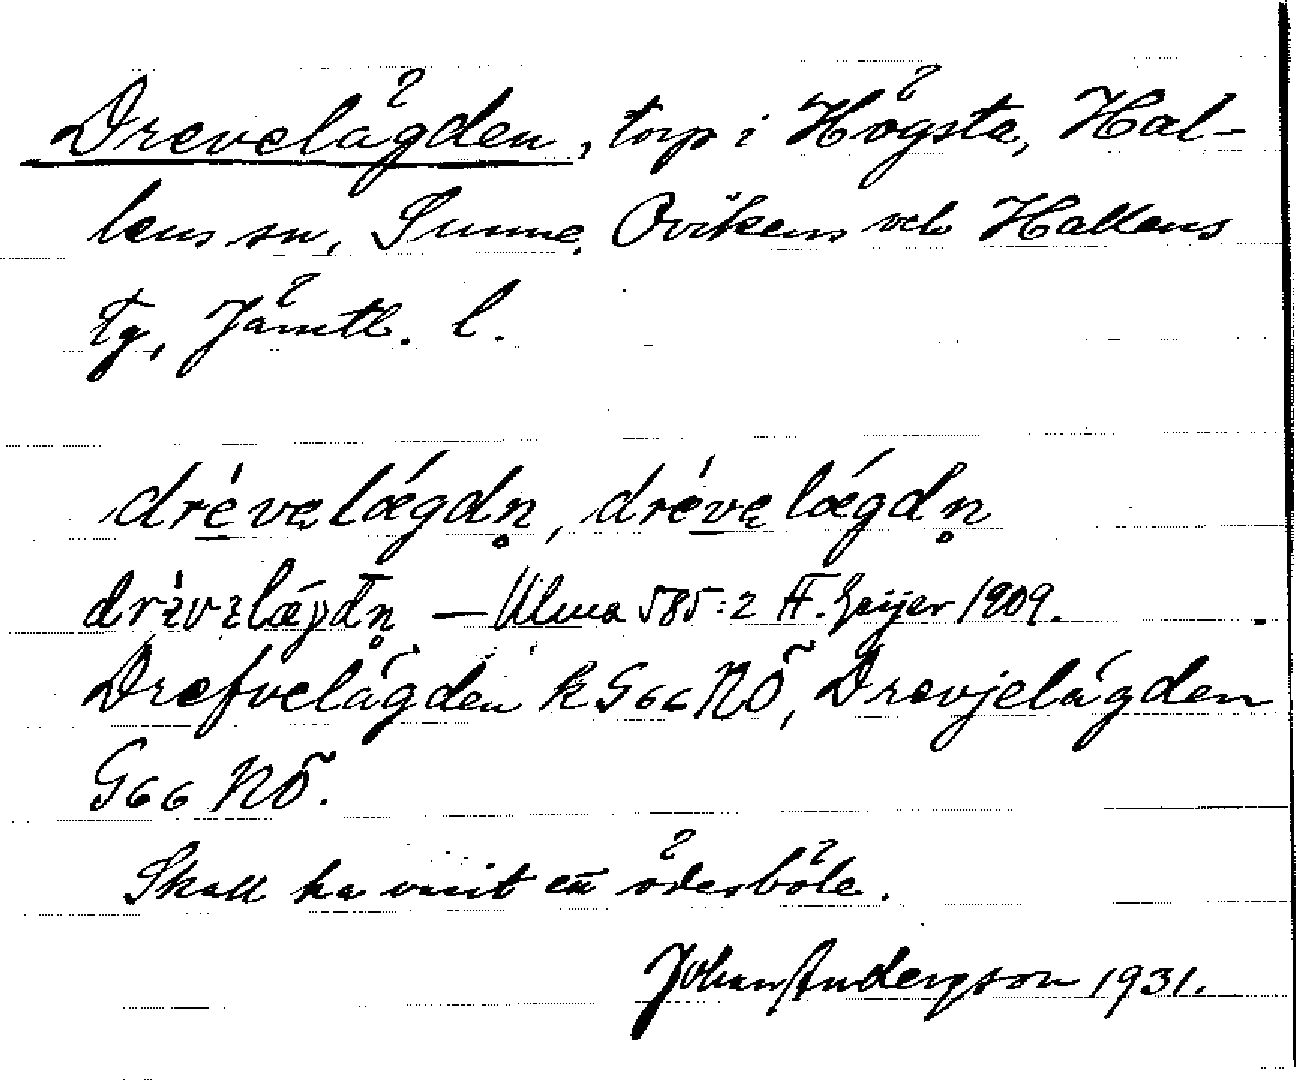 Drevelägden, torp i Högsta, Hal-
lens sn, Sunne, Ovikens och Hallens
tg, Jämtl. l.
drevęlægdn̥, drevęlægdn̥
drivılægdn̥ — Ulma 585:2 H. Geijer 1909.
Drefvelägden k G66 NÖ, Drevjelägden
G66 NÖ.
Skall ha varit en ödesböle.
Johan Anderzson 1931.